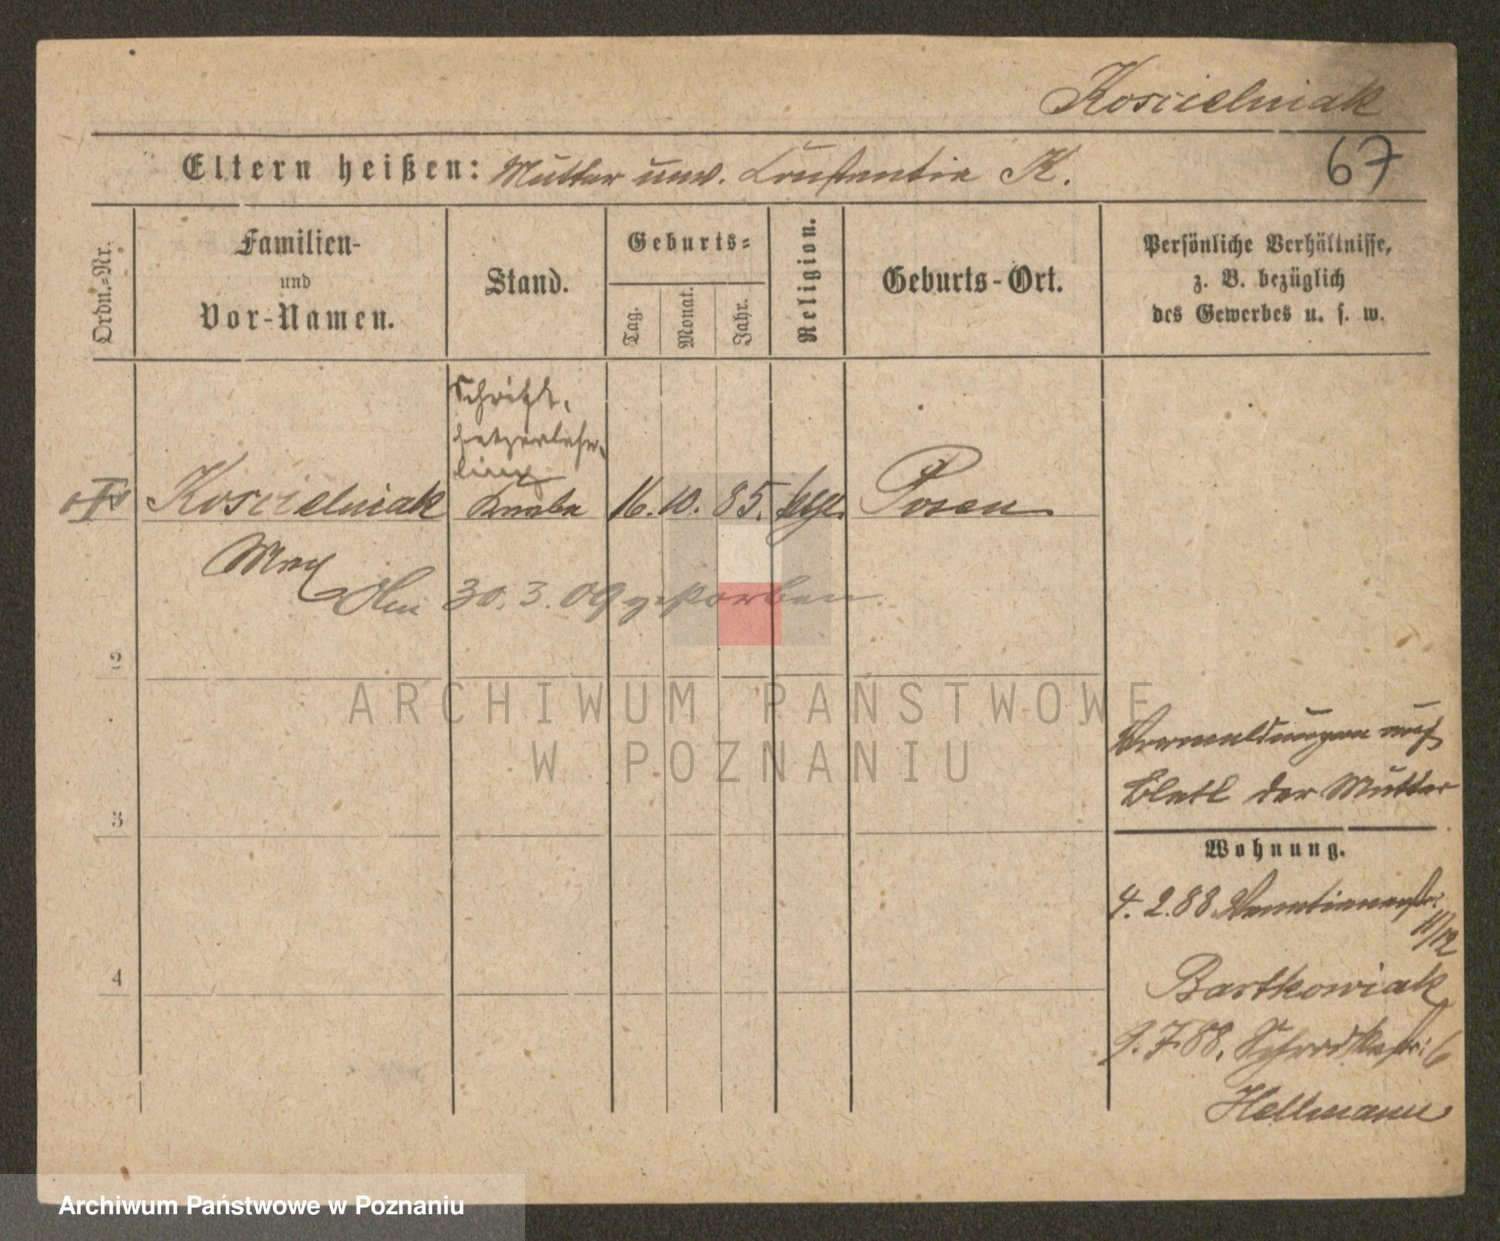 Koscielniak
Eltern heißen: Mutter unv. Constantia K.
67
Ordn.-Nr.
Familien-
und
Vor-Namen.
Stand.
Geburts-
Tag.
Monat.
Jahr.
Religion.
Geburts-Ort.
Persönliche Verhältnisse,
z. B. bezüglich
des Gewerbes u. s. w.
Schrift-
setzerlehr-
ling
Koscielniak Knabe 16. 10. 85. kath. Posen
Max
Am 30. 3. 09 gestorben.
2
3
4
Vermeldungen auf
Blatt der Mutter
Wohnung.
4. 2. 88 Venetianerstr.
11/12
Bartkowiak
9. 7. 88. Schrodkastr. 6
Hellmann
ARCHIWUM PAŃSTWOWE
W POZNANIU
Archiwum Państwowe w Poznaniu